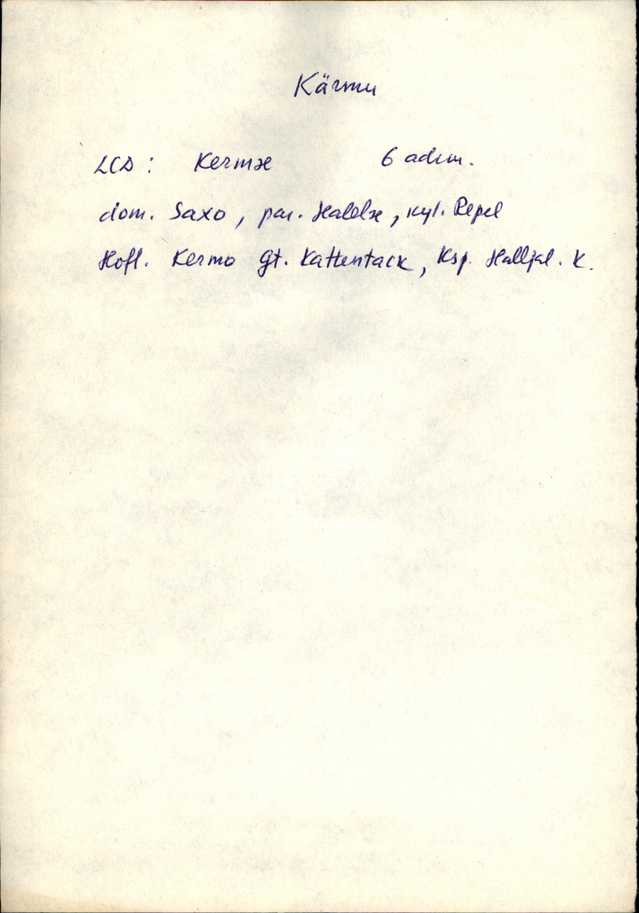 Kärmu
LCD: Kermæ 6 adm.
dom. Saxo, par. Halelæ, kyl. Repel
Hofl. Kermo Gt. Kattentack, Ksp. Halljal. K.